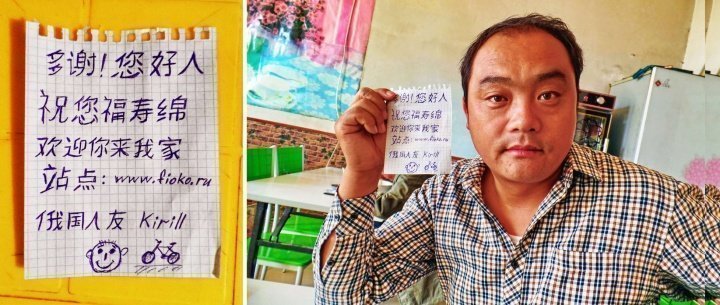 多谢！您好人
祝您福寿绵
欢迎你来我家
站点：www.fioko.ru
俄国人友 Kirill
多谢！您好人
祝您福寿绵
欢迎你来我家
站点：www.fioko.ru
俄国人友 Kirill